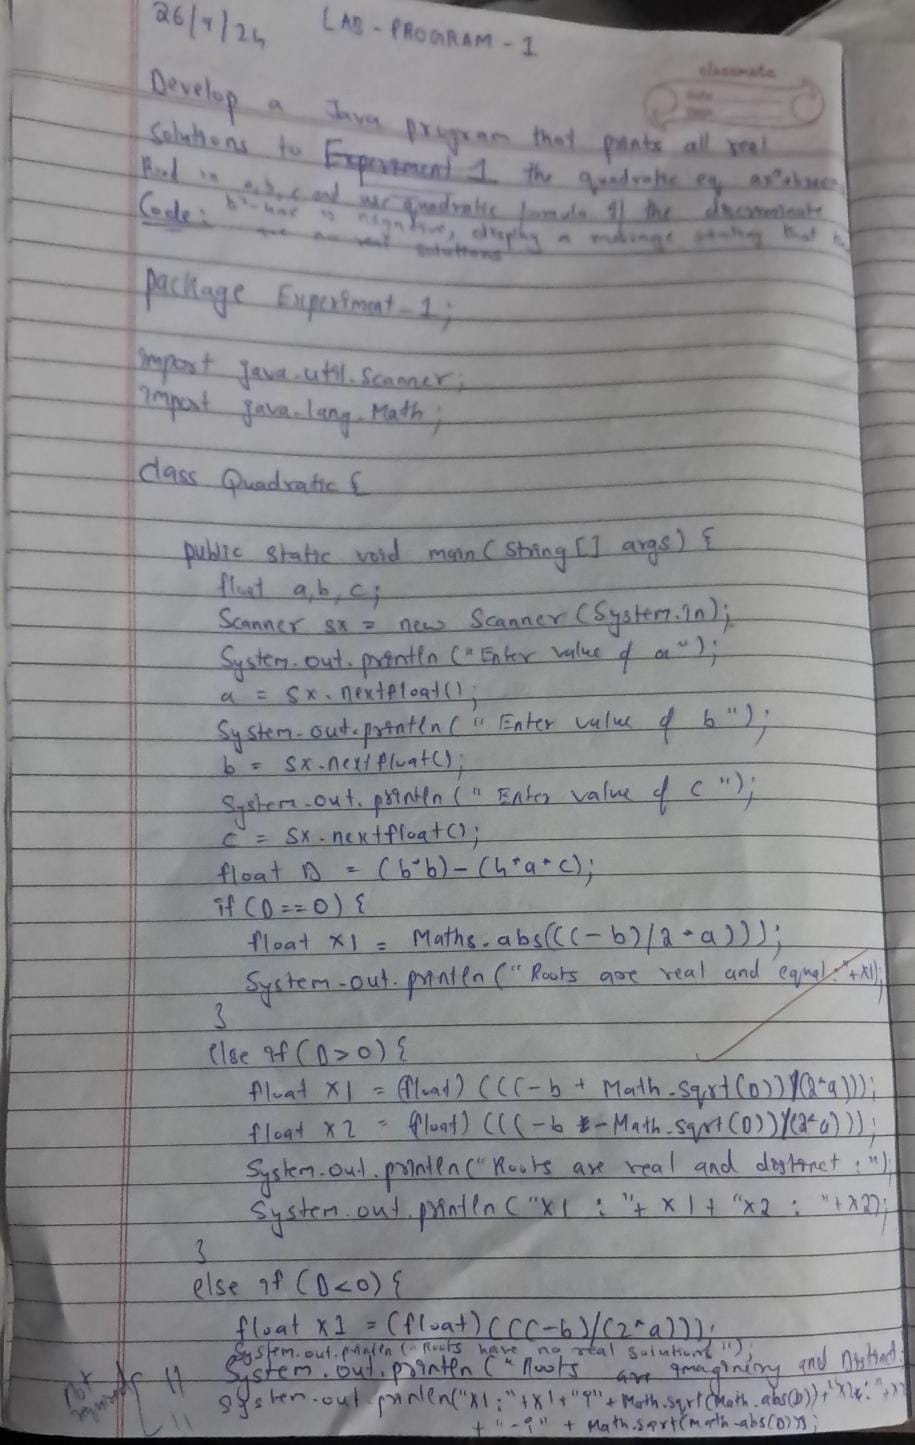 26/9/24 LAB-PROGRAM-1
classmate
Develop a Java program that prints all real
solutions to Experiment 1 the quadratic eq ax²+bx+c
Read in a, b, c and use quadratic formula If the discriminate
b²-4ac is negative, display a message stating that
Code: are no real solutions
package Experiment_1;
import java.util.Scanner;
import java.lang.Math;
class Quadratic {
public static void main(String[] args) {
float a,b,c;
Scanner sx = new Scanner(System.in);
System.out.println("Enter value of a");
a = sx.nextfloat();
System.out.println(" Enter value of b");
b = sx.nextfloat();
System.out.println(" Enter value of c ");
c = sx.nextfloat();
float D = (b*b)-(4*a*c);
if (D==0) {
float x1 = Maths.abs(((-b)/2*a)));
System.out.println("Roots are real and equal:"+x1);
}
else if (D>0) {
float x1 = (float) (((-b + Math.sqrt(D))/(2*a)));
float x2 = float) (((-b - Math.sqrt(D))/(2*a)));
System.out.println("Roots are real and distinct :");
System.out.println("x1 : "+ x1 + "x2 : "+x2);
}
else if (D<0) {
float x1 = (float)(((-b)/(2*a)));
System.out.println("Roots have no real solutions");
// System.out.println("Roots are imaginery and Distinct
Not required // System.out.println("x1:"+x1+"i"+Math.sqrt(Math.abs(D))+"x2:"+x1
+"-i" + Math.sqrt(math.abs(D)));